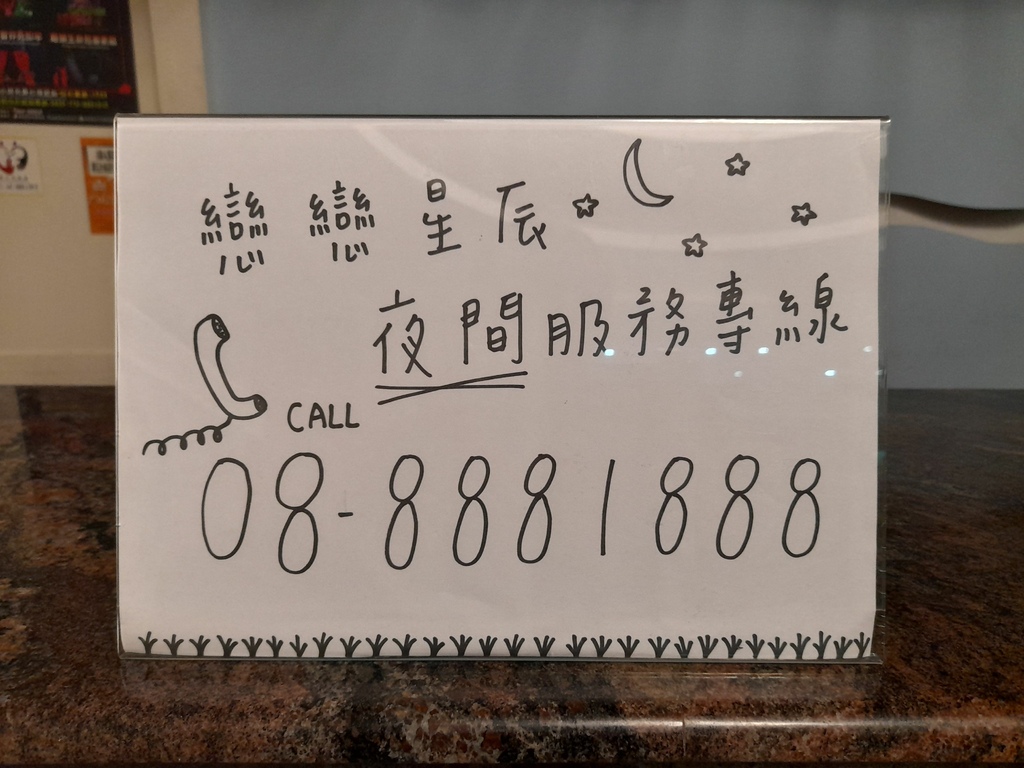 戀戀星辰
夜間服務專線
CALL
08-8881888